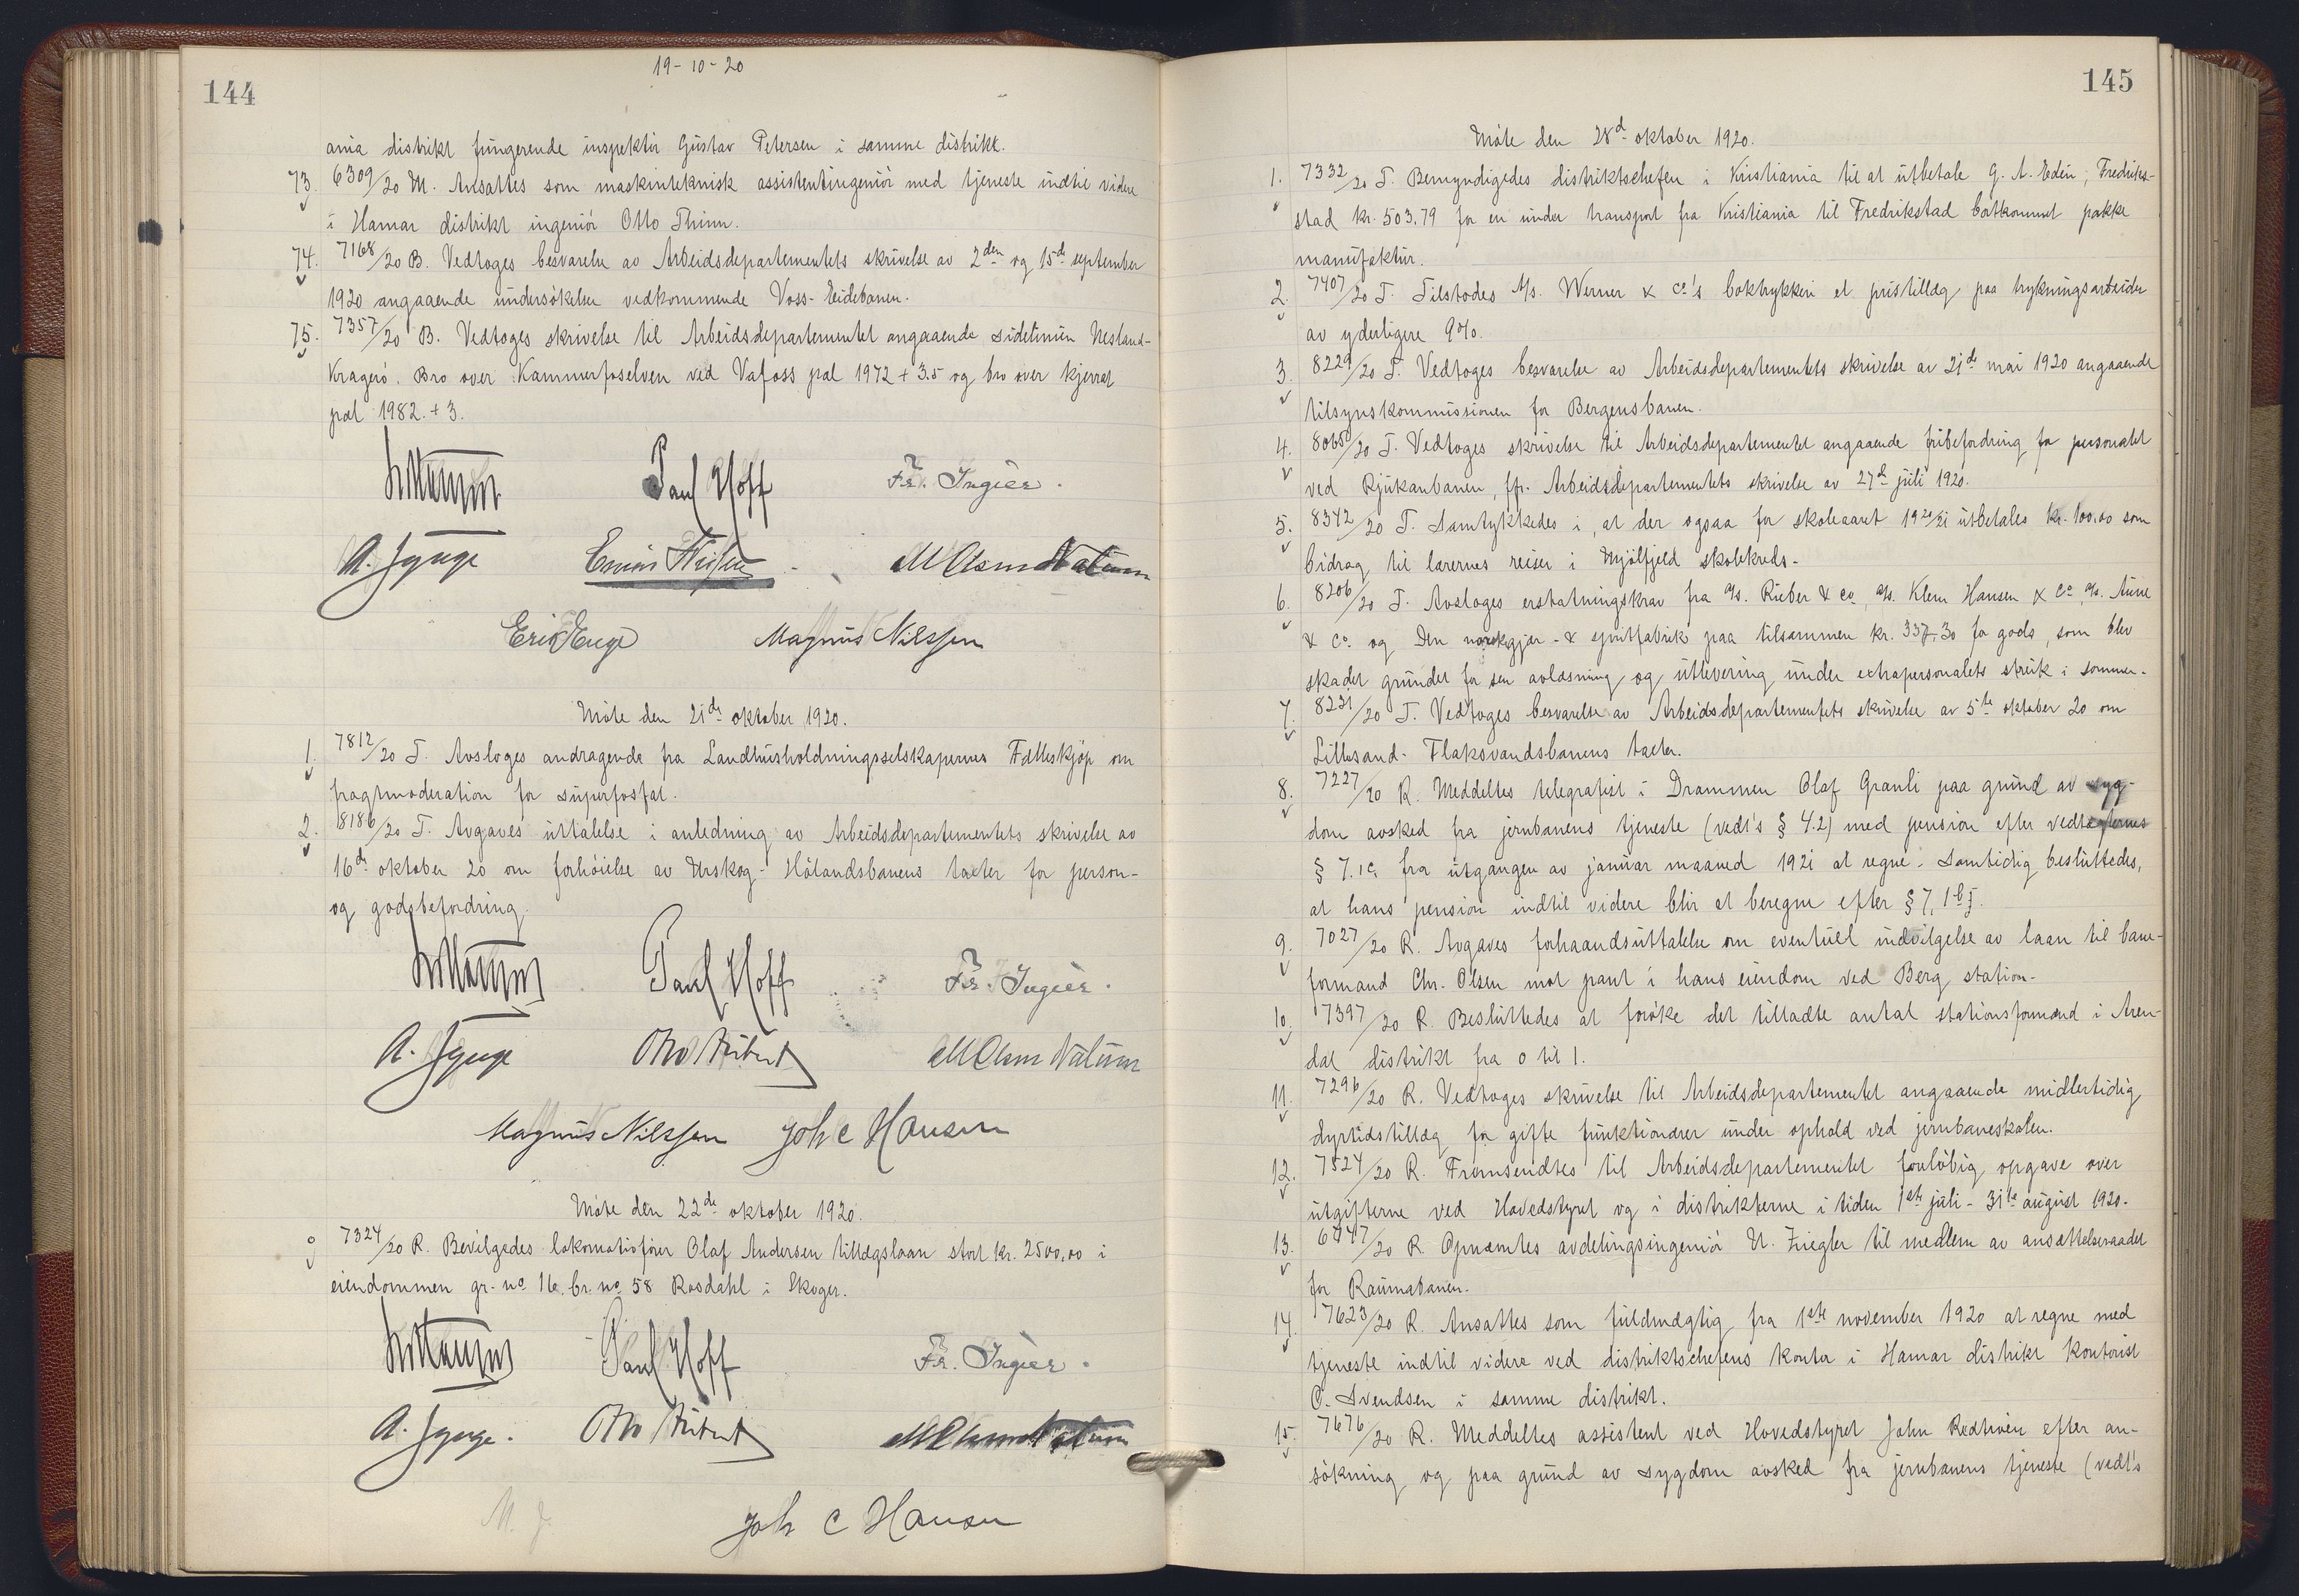 144
19-10-20
ania distrikt fungerende inspektör Gustav Petersen i samme distrikt.
73. 6309/20 M. Ansattes som maskinteknisk assistentingeniör med tjeneste indtil videre
i Hamar distrikt ingeniör Otto Thinn.
74. 7168/20 B. Vedtoges besvarelse av Arbeidsdepartementets skrivelse av 2den og 15de september
1920 angaaende undersökelse vedkommende Voss-Eidebanen.
75. 7357/20 B. Vedtoges skrivelse til Arbeidsdepartementet angaaende sidelinien Nesland-
Kragerö. Bro over Kammerfoselven ved Vafoss pæl 1972 + 3.5 og bro over kjerrat
pæl 1982. + 3.
Paul Hoff Fr. Ingier.
Magnus Nilssen
Möte den 21de oktober 1920.
1. 7812/20 T. Avsloges andragende fra Landhusholdningsselskapernes Fælleskjöp om
fragtmoderation for superfosfat.
2. 8186/20 T. Avgaves uttalelse i anledning av Arbeidsdepartementets skrivelse av
16de oktober 20 om forhöielse av Urskog-Hölandsbanens taxter for person-
og godsbefordring.
Paul Hoff Fr. Ingier.
Magnus Nilssen Joh C Hansen
Möte den 22de oktober 1920.
7324/20 R. Bevilgedes lokomotivförer Olaf Andersen tillægslaan stort kr. 2500,00 i
eiendommen gr. no 16. br. no 58 Rosdahl i Skoger.
Paul Hoff Fr. Ingier.
Joh C Hansen
145
Möte den 28de oktober 1920.
1. 7332/20 T. Bemyndigedes distriktschefen i Kristiania til at utbetale G. A. Edin, Fredrik-
stad kr. 503.79 for en under transport fra Kristiania til Fredrikstad bortkommet pakke
manufaktur.
2. 7407/20 T. Tilstodes A/s. Werner & Co's boktrykkeri et pristillæg paa trykningsarbeider
av yderligere 9%.
3. 8229/20 T. Vedtoges besvarelse av Arbeidsdepartementets skrivelse av 21de mai 1920 angaaende
tilsynskommissionen for Bergensbanen.
4. 8065/20 T. Vedtoges skrivelse til Arbeidsdepartementet angaaende fribefordring for personalet
ved Rjukanbanen, jfr. Arbeidsdepartementets skrivelse av 27de juli 1920.
5. 8342/20 T. Samtykkedes i, at der ogsaa for skoleaaret 1920/21 utbetales kr. 100.00 som
bidrag til lærernes reiser i Mjölfjeld skolekreds.
6. 8206/20 T. Avsloges erstatningskrav fra A/s. Rieber & Co, A/s. Klem Hansen & Co, A/s. Aune
& Co. og Den norske gjær- & spritfabrik paa tilsammen kr. 337,30 for gods, som blev
skadet grundet for sen avlæsning og utlevering under extrapersonalets streik i sommer.
7. 8231/20 T. Vedtoges besvarelse av Arbeidsdepartementets skrivelse av 5te oktober 20 om
Lillesand-Flaksvandsbanens taxter.
8. 7227/20 R. Meddeltes telegrafist i Drammen Olaf Granli paa grund av syg-
dom avsked fra jernbanens tjeneste (vedt's § 4.2) med pension efter vedtægternes
§ 7.1c fra utgangen av januar maaned 1921 at regne. Samtidig besluttedes,
at hans pension indtil videre blir at beregne efter § 7, 1 b.
9. 7027/20 R. Avgaves forhaandsuttalelse om eventuell indvilgelse av laan til bane-
formand Chr. Olsen mot pant i hans eiendom ved Berg station.
10. 7397/20 R. Besluttedes at foröke det tilladte antal stationsformænd i Aren-
dal distrikt fra 0 til 1.
11. 7296/20 R. Vedtoges skrivelse til Arbeidsdepartementet angaaende midlertidig
dyrtidstillæg for gifte funktionærer under ophold ved jernbaneskolen.
12. 7524/20 R. Fremsendtes til Arbeidsdepartementet forelöbig opgave over
utgifterne ved Hovedstyret og i distrikterne i tiden 1ste juli - 31te august 1920.
13. 6447/20 R. Opnævntes avdelingsingeniör U. Ziegler til medlem av ansættelsesraadet
for Raumabanen.
14. 7623/20 R. Ansattes som fuldmægtig fra 1ste november 1920 at regne med
tjeneste indtil videre ved distriktschefens kontor i Hamar distrikt kontorist
O. Svendsen i samme distrikt.
15. 7676/20 R. Meddeltes assistent ved Hovedstyret John efter an-
sökning og paa grund av sygdom avsked fra jernbanens tjeneste (vedt's